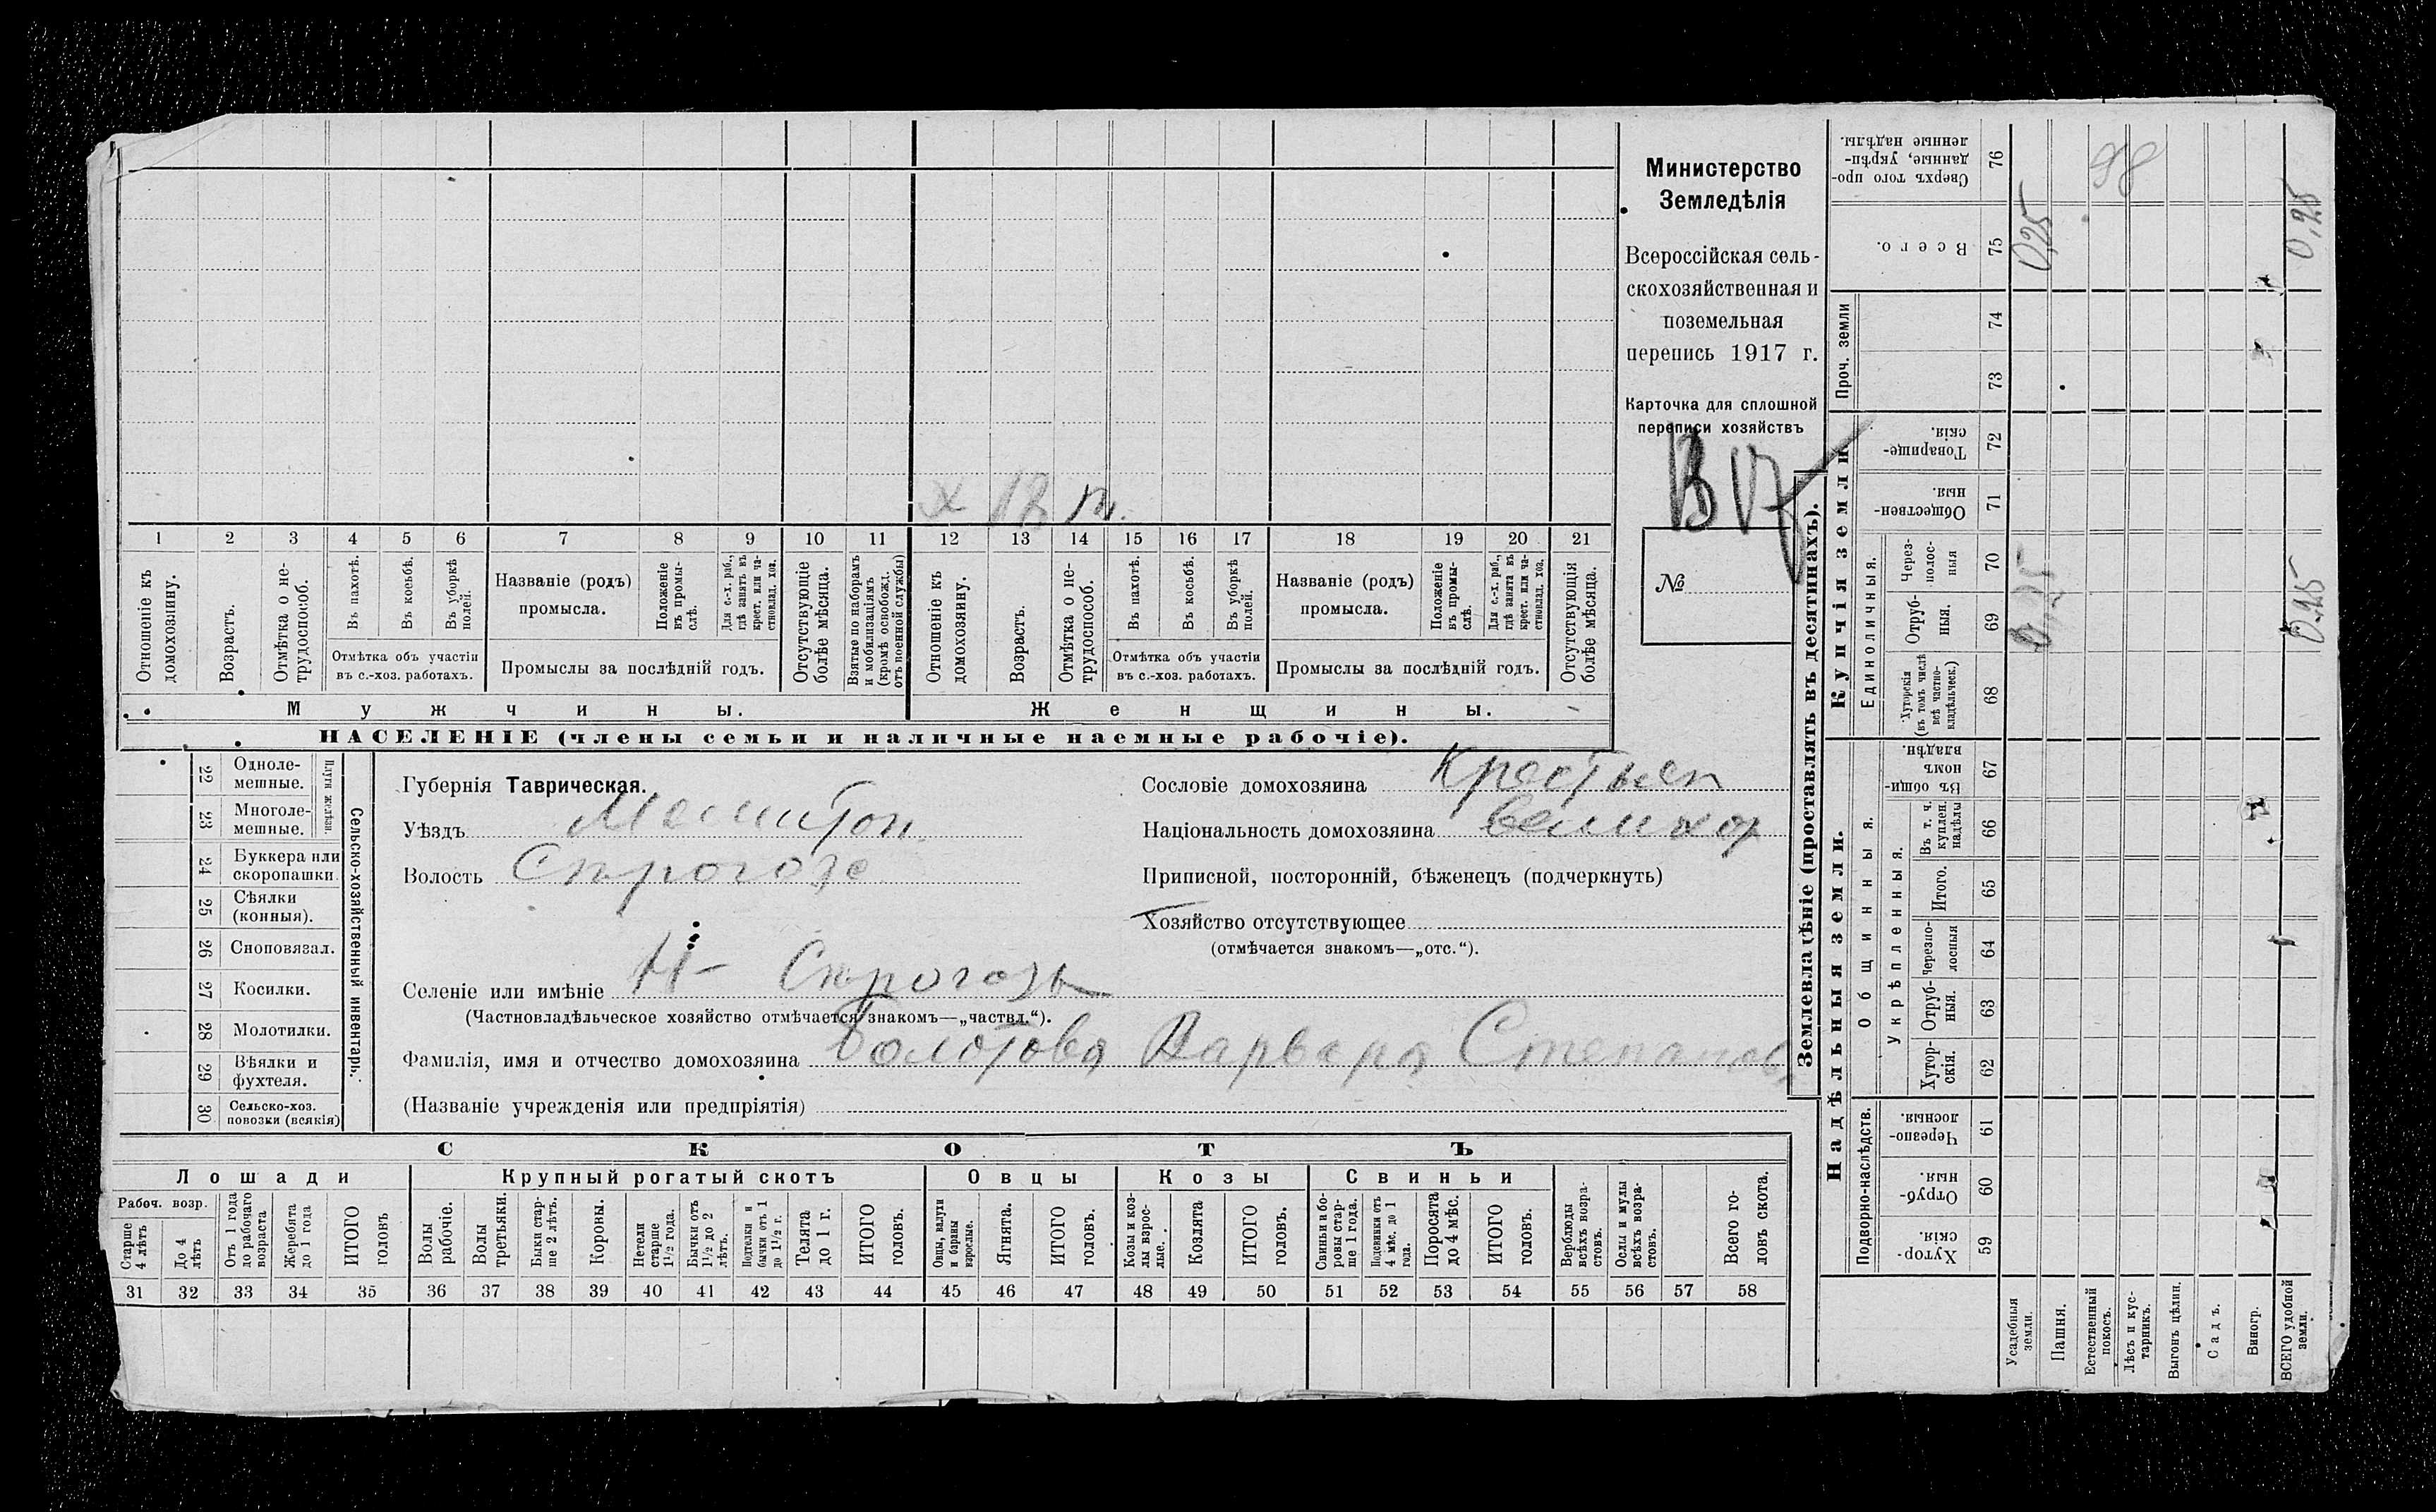 Министерство
Земледѣлія
Всероссійская сель-
скохозяйственная и
поземельная
перепись 1917 г.
Карточка для сплошной
переписи хозяйствъ
№
х 18 п.
1 2 3 4 5 6 7 8 9 10 11 12 13 14 15 16 17 18 19 20 21
Отношеніе къ домохозяину.
Возрастъ.
Отмѣтка о не-трудоспособ.
Въ пахотѣ.
Въ косьбѣ.
Въ уборкѣ полей.
Отмѣтка объ участіи
въ с.-хоз. работахъ.
Названіе (родъ)
промысла.
Положеніе въ промы-слѣ.
Для с.-х. раб., гдѣ занятъ въ крест. или ча-стновлад. хоз.
Промыслы за послѣдній годъ.
Отсутствующіе болѣе мѣсяца.
Взятые по наборамъ и мобилизаціямъ (кромѣ освобожд. отъ военной службы)
Отношеніе къ домохозяину.
Возрастъ.
Отмѣтка о не-трудоспособ.
Въ пахотѣ.
Въ косьбѣ.
Въ уборкѣ полей.
Отмѣтка объ участіи
въ с.-хоз. работахъ.
Названіе (родъ)
промысла.
Положеніе въ промы-слѣ.
Для с.-х. раб., гдѣ занята въ крест. или ча-стновлад. хоз.
Промыслы за послѣдній годъ.
Отсутствующія болѣе мѣсяца.
Мужчины.
Женщины.
НАСЕЛЕНІЕ (члены семьи и наличные наемные рабочіе).
Сельско-хозяйственный инвентарь.
Плуги желѣзн.
22 Одноле-мешные.
23 Многоле-мешные.
24 Буккера или скоропашки.
25 Сѣялки (конныя).
26 Сноповязал.
27 Косилки.
28 Молотилки.
29 Вѣялки и фухтеля.
30 Сельско-хоз. повозки (всякія)
Губернія Таврическая.
Уѣздъ Мелитоп.
Волость Спрогозс
Селеніе или имѣніе Н- Спрогозы
(Частновладѣльческое хозяйство отмѣчается знакомъ—„частвл.“).
Фамилія, имя и отчество домохозяина Болотова Варвара Степанов.
(Названіе учрежденія или предпріятія)
Сословіе домохозяина Крестьян
Національность домохозяина великор
Приписной, посторонній, бѣженецъ (подчеркнуть)
Хозяйство отсутствующее
(отмѣчается знакомъ—„отс.“).
СКОТЪ
Лошади
Крупный рогатый скотъ
Овцы
Козы
Свиньи
Рабоч. возр.
Старше 4 лѣтъ
До 4 лѣтъ
Отъ 1 года до рабочаго возраста
Жеребята до 1 года
ИТОГО головъ
Волы рабочіе.
Волы третьяки.
Быки стар-ше 2 лѣтъ.
Коровы.
Нетели старше 1½ года.
Бычки отъ 1½ до 2 лѣтъ.
Подтелки и бычки отъ 1 до 1½ г.
Телята до 1 г.
ИТОГО головъ.
Овцы, валухи и бараны взрослые.
Ягнята.
ИТОГО головъ.
Козы и коз-лы взрос-лые.
Козлята
ИТОГО головъ.
Свиньи и бо-ровы стар-ше 1 года.
Подсвинки отъ 4 мѣс. до 1 года.
Поросята до 4 мѣс.
ИТОГО головъ.
Верблюды всѣхъ возра-стовъ.
Ослы и мулы всѣхъ возра-стовъ.
Всего го-ловъ скота.
31 32 33 34 35 36 37 38 39 40 41 42 43 44 45 46 47 48 49 50 51 52 53 54 55 56 57 58
Землевладѣніе (проставлять въ десятинахъ).
Надѣльныя земли.
Купчія земли.
Проч. земли
Подворно-наслѣдств.
Общинныя.
Укрѣпленныя.
Единоличныя.
Хутор-скія. 59
Отруб-ныя. 60
Черезпо-лосныя. 61
Хутор-скія. 62
Отруб-ныя. 63
Черезпо-лосныя 64
Итого. 65
Въ т. ч. куплен. надѣлы 66
Въ общи-номъ владѣн. 67
Хуторскія (въ томъ числѣ всѣ частно-владѣльческ.) 68
Отруб-ныя. 69
Через-полос-ныя 70
Обществен-ныя. 71
Товарище-скія. 72
73
74
Всего. 75
Сверхъ того про-данные, укрѣп-ленные надѣлы. 76
Усадебныя земли.
Пашня.
Естественный покосъ.
Лѣсъ и кус-тарникъ.
Выгонъ цѣлин.
Садъ.
Виногр.
ВСЕГО удобной земли.
0,25
0,25
0,25
0,25
98